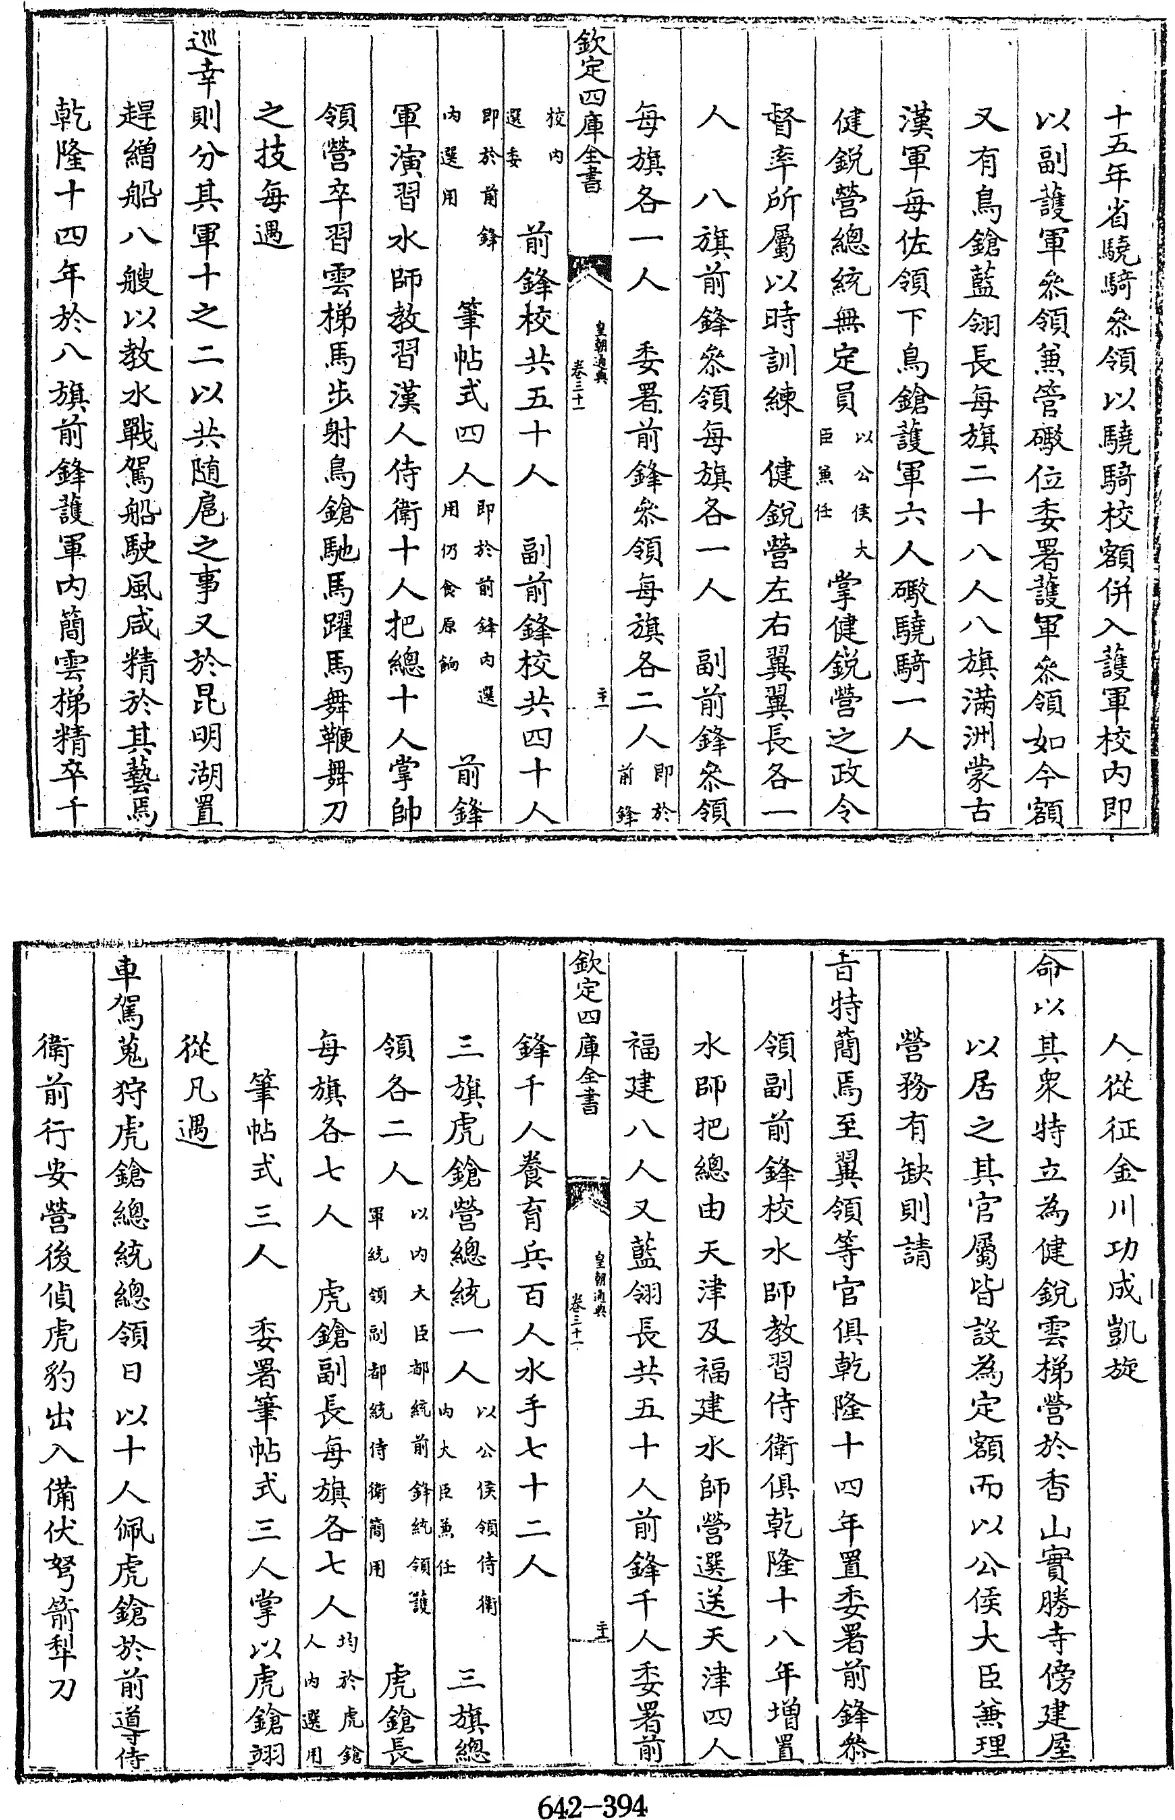 十五年省驍騎叅領以驍騎校額併入護軍校内即
以副護軍叅領兼管礮位委署護軍叅領如今額
又有鳥鎗藍翎長每旗二十八人八旗滿洲蒙古
漢軍每佐領下鳥鎗護軍六人礮驍騎一人
健銳營總統無定員以公侯大臣兼任掌健銳營之政令
督率所屬以時訓練 健銳營左右翼翼長各一
人 八旗前鋒叅領每旗各一人 副前鋒叅領
每旗各一人 委署前鋒叅領每旗各二人即於前鋒
欽定四庫全書 皇朝通典 卷三十一
校内選委 前鋒校共五十人 副前鋒校共四十人
即於前鋒内選用 筆帖式四人即於前鋒内選用仍食原餉 前鋒
軍演習水師教習漢人侍衛十人把總十人掌帥
領營卒習雲梯馬步射鳥鎗馳馬躍馬舞鞭舞刀
之技每遇
巡幸則分其軍十之二以共随扈之事又於昆明湖置
趕繒船八艘以教水戰駕船駛風咸精於其藝焉
乾隆十四年於八旗前鋒護軍内簡雲梯精卒千
人從征金川功成凱旋
命以其衆特立為健銳雲梯營於香山實勝寺傍建屋
以居之其官屬皆設為定額而以公侯大臣兼理
營務有缺則請
旨特簡焉至翼領等官俱乾隆十四年置委署前鋒叅
領副前鋒校水師教習侍衛俱乾隆十八年增置
水師把總由天津及福建水師營選送天津四人
福建八人又藍翎長共五十人前鋒千人委署前
欽定四庫全書 皇朝通典 卷三十一
鋒千人養育兵百人水手七十二人
三旗虎鎗營總統一人以公侯領侍衛内大臣兼任 三旗總
領各二人以内大臣都統前鋒統領護軍統領副都統侍衛簡用 虎鎗長
每旗各七人 虎鎗副長每旗各七人均於虎鎗人内選用
筆帖式三人 委署筆帖式三人掌以虎鎗翊
從凡遇
車駕蒐狩虎鎗總統總領日以十人佩虎鎗於前導侍
衛前行安營後偵虎豹出入備伏弩箭犁刀
642-394